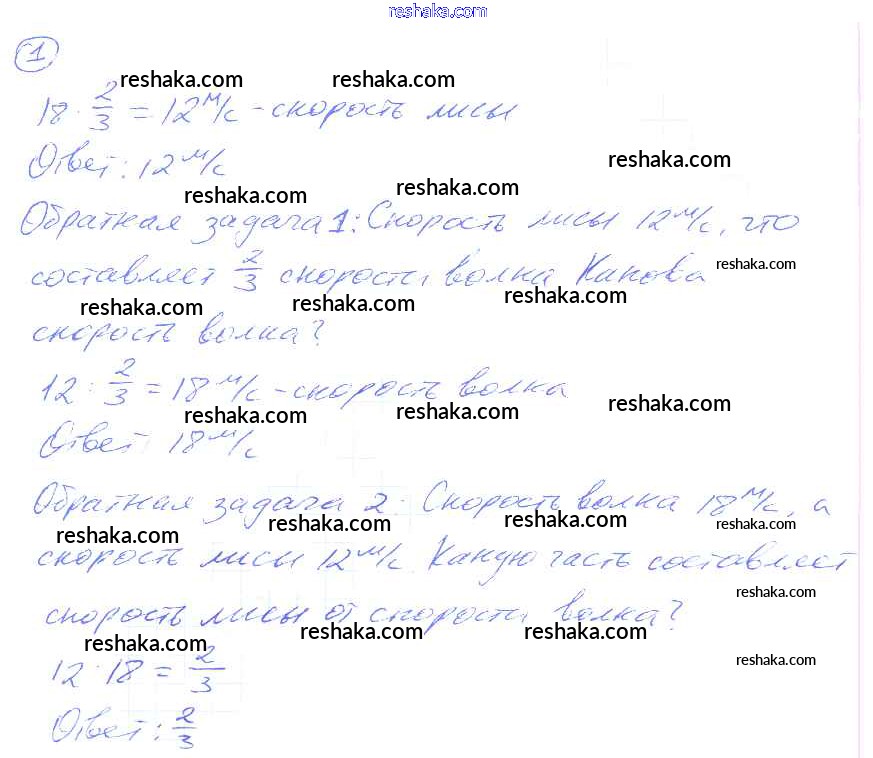 reshaka.com
1
reshaka.com reshaka.com
18 · 2/3 = 12 м/с - скорость лисы
reshaka.com
Ответ: 12 м/с
reshaka.com reshaka.com
Обратная задача 1: Скорость лисы 12 м/с, что
reshaka.com
составляет 2/3 скорости волка Какова
reshaka.com reshaka.com reshaka.com
скорость волка?
12 : 2/3 = 18 м/с - скорость волка
reshaka.com reshaka.com reshaka.com
Ответ: 18 м/с
Обратная задача 2: Скорость волка 18 м/с, а
reshaka.com reshaka.com reshaka.com reshaka.com
скорость лисы 12 м/с Какую часть составляет
reshaka.com
скорость лисы от скорости волка?
reshaka.com reshaka.com reshaka.com
12 : 18 = 2/3
reshaka.com
Ответ: 2/3